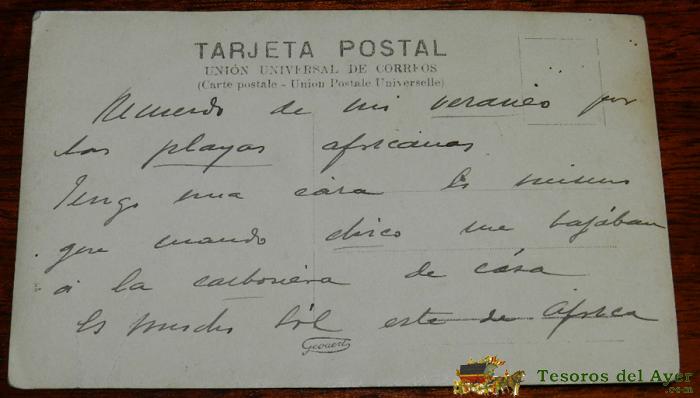 TARJETA POSTAL
UNIÓN UNIVERSAL DE CORREOS
(Carte postale - Union Postale Universelle)
Recuerdo de mi veraneo por
las playas africanas
Tengo una cara lo mismo
que cuando chico me bajaban
á la carbonera de casa
Es mucho sól este de Africa
Gevaert
Tesoros del Ayer
.com